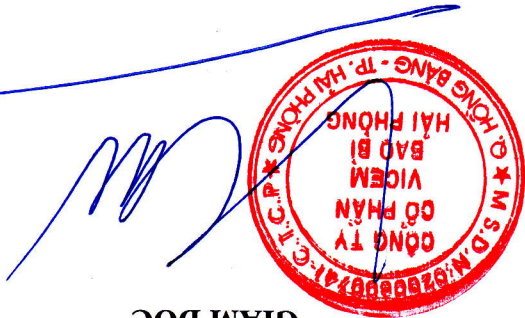 GIÁM ĐỐC
M.S.D.N:0200600741-C.T.C.P
CÔNG TY
CỔ PHẦN
VICEM
BAO BÌ
HẢI PHÒNG
Q. HỒNG BÀNG - TP. HẢI PHÒNG